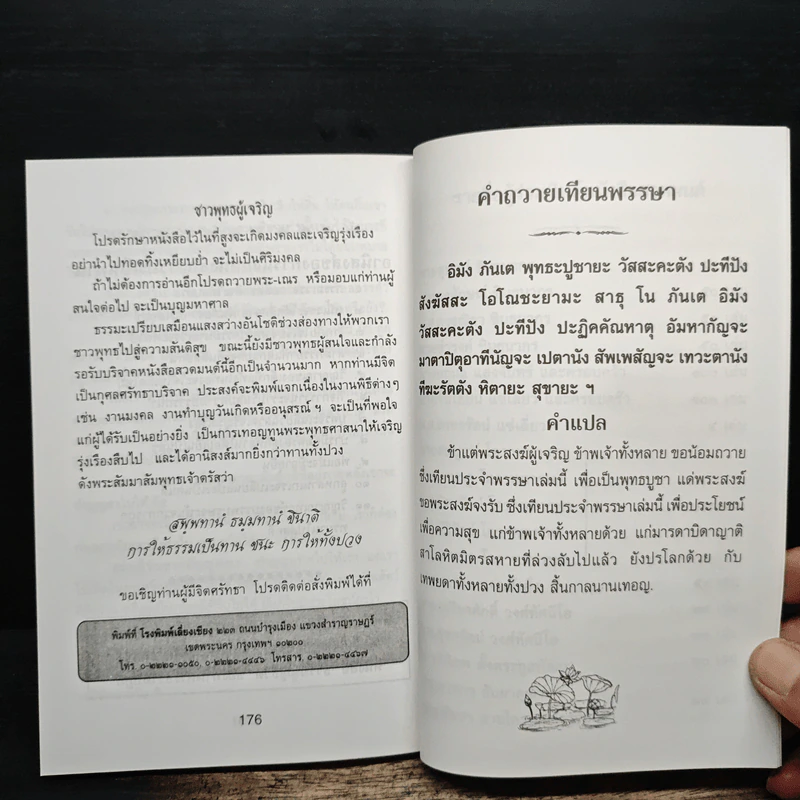 ชาวพุทธผู้เจริญ
โปรดรักษาหนังสือไว้ในที่สูงจะเกิดมงคลและเจริญรุ่งเรือง
อย่านำไปทอดทิ้งเหยียบย่ำ จะไม่เป็นศิริมงคล
ถ้าไม่ต้องการอ่านอีกโปรดถวายพระ-เณร หรือมอบแก่ท่านผู้
สนใจต่อไป จะเป็นบุญมหาศาล
ธรรมะเปรียบเสมือนแสงสว่างอันโชติช่วงส่องทางให้พวกเรา
ชาวพุทธไปสู่ความสันติสุข ขณะนี้ยังมีชาวพุทธผู้สนใจและกำลัง
รอรับบริจาคหนังสือสวดมนต์นี้อีกเป็นจำนวนมาก หากท่านมีจิต
เป็นกุศลศรัทธาบริจาค ประสงค์จะพิมพ์แจกเนื่องในงานพิธีต่างๆ
เช่น งานมงคล งานทำบุญวันเกิดหรืออนุสรณ์ ฯ จะเป็นที่พอใจ
แก่ผู้ได้รับเป็นอย่างยิ่ง เป็นการเทอญทูนพระพุทธศาสนาให้เจริญ
รุ่งเรืองสืบไป และได้อานิสงส์มากยิ่งกว่าทานทั้งปวง
ดังพระสัมมาสัมพุทธเจ้าตรัสว่า
สพฺพทานํ ธมฺมทานํ ชินาติ
การให้ธรรมเป็นทาน ชนะ การให้ทั้งปวง
ขอเชิญท่านผู้มีจิตศรัทธา โปรดติดต่อสั่งพิมพ์ได้ที่
พิมพ์ที่ โรงพิมพ์เลี่ยงเชียง ๒๒๓ ถนนบำรุงเมือง แขวงสำราญราษฎร์
เขตพระนคร กรุงเทพฯ ๑๐๒๐๐
โทร. ๐-๒๒๒๑-๑๐๕๐, ๐-๒๒๒๑-๔๔๔๖ โทรสาร. ๐-๒๒๒๑-๔๔๖๗
176
คำถวายเทียนพรรษา
อิมัง ภันเต พุทธะปูชายะ วัสสะคะตัง ปะทีปัง
สังฆัสสะ โอโณชะยามะ สาธุ โน ภันเต อิมัง
วัสสะคะตัง ปะทีปัง ปะฏิคคัณหาตุ อัมหากัญจะ
มาตาปิตุอาทีนัญจะ เปตานัง สัพเพสัญจะ เทวะตานัง
ทีฆะรัตตัง หิตายะ สุขายะ ฯ
คำแปล
ข้าแต่พระสงฆ์ผู้เจริญ ข้าพเจ้าทั้งหลาย ขอน้อมถวาย
ซึ่งเทียนประจำพรรษาเล่มนี้ เพื่อเป็นพุทธบูชา แด่พระสงฆ์
ขอพระสงฆ์จงรับ ซึ่งเทียนประจำพรรษาเล่มนี้ เพื่อประโยชน์
เพื่อความสุข แก่ข้าพเจ้าทั้งหลายด้วย แก่มารดาบิดาญาติ
สาโลหิตมิตรสหายที่ล่วงลับไปแล้ว ยังปรโลกด้วย กับ
เทพยดาทั้งหลายทั้งปวง สิ้นกาลนานเทอญ.